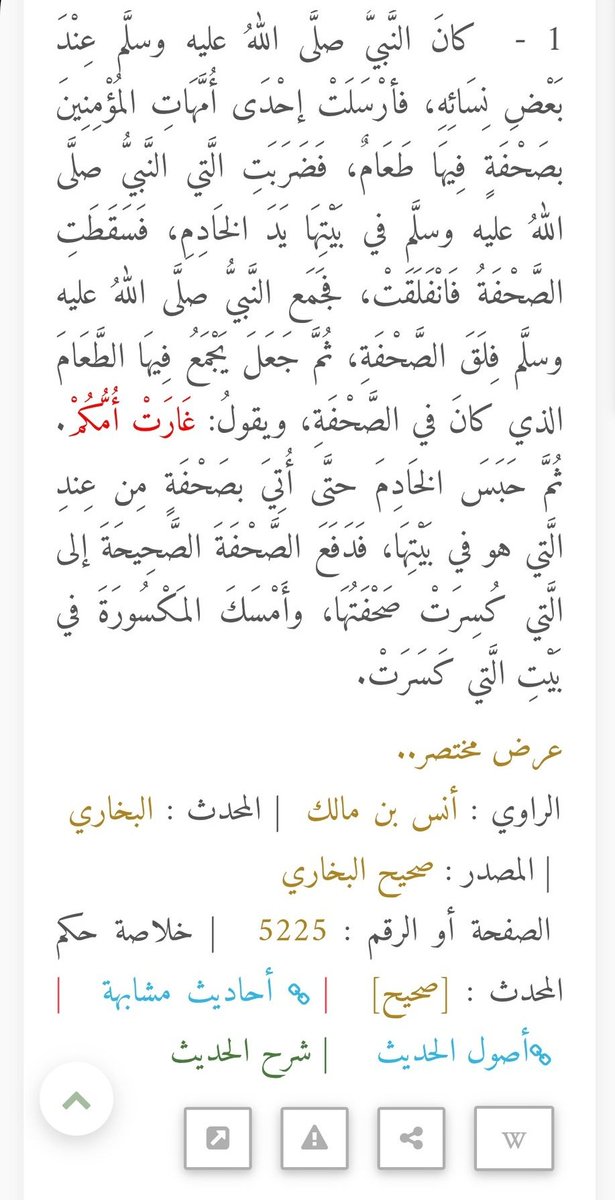 1 - كانَ النَّبيُّ صلَّى اللهُ عليه وسلَّم عِنْدَ
بَعْضِ نِسَائِهِ، فأرْسَلَتْ إحْدَى أُمَّهَاتِ المُؤْمِنِينَ
بصَحْفَةٍ فِيهَا طَعَامٌ، فَضَرَبَتِ الَّتي النَّبيُّ صلَّى
اللهُ عليه وسلَّم في بَيْتِهَا يَدَ الخَادِمِ، فَسَقَطَتِ
الصَّحْفَةُ فَانْفَلَقَتْ، فَجَمَع النَّبيُّ صلَّى اللهُ عليه
وسلَّم فِلَقَ الصَّحْفَةِ، ثُمَّ جَعَلَ يَجْمَعُ فِيهَا الطَّعَامَ
الذي كانَ في الصَّحْفَةِ، ويقولُ: غَارَتْ أُمُّكُمْ.
ثُمَّ حَبَسَ الخَادِمَ حتَّى أُتِيَ بصَحْفَةٍ مِن عِندِ
الَّتي هو في بَيْتِهَا، فَدَفَعَ الصَّحْفَةَ الصَّحِيحَةَ إلى
الَّتي كُسِرَتْ صَحْفَتُهَا، وأَمْسَكَ المَكْسُورَةَ في
بَيْتِ الَّتي كَسَرَتْ.
عرض مختصر..
الراوي : أنس بن مالك | المحدث : البخاري
| المصدر : صحيح البخاري
الصفحة أو الرقم : 5225 | خلاصة حكم
المحدث : [صحيح] | أحاديث مشابهة |
أصول الحديث | شرح الحديث
W